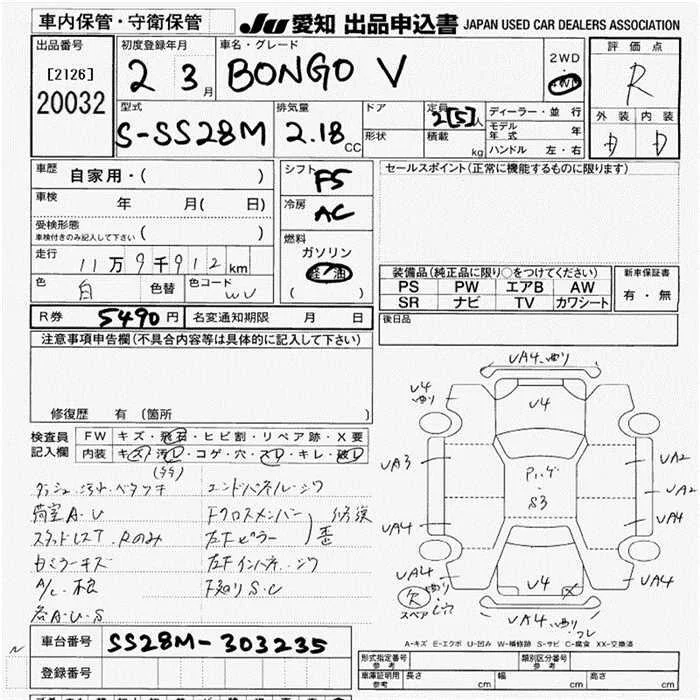 車内保管・守衛保管
JU 愛知 出品申込書 JAPAN USED CAR DEALERS ASSOCIATION
出品番号
[2126]
20032
初度登録年月
2 3月
車名・グレード
BONGO V
2WD
4WD
評価点
R
外装 内装
D D
型式
S-SS28M
排気量
2.18 CC
ドア
形状
定員
2[5]人
積載
kg
ディーラー・並行
モデル年式 年
ハンドル 左・右
車歴
自家用・( )
車検
年 月( 日)
受検形態
車検付きのみ記入して下さい ( )
走行
11万9千912km
色
白
色替
色コード
WU
シフト
F5
冷房
AC
燃料
ガソリン
軽油
( )
セールスポイント(正常に機能するものに限ります)
装備品(純正品に限り○をつけてください)
PS PW エアB AW
SR ナビ TV カワシート
新車保証書
有・無
R券 5490円
名変通知期限 月 日
後日品
注意事項申告欄(不具合内容等は具体的に記入して下さい)
修復歴 有 (箇所 )
検査員
記入欄
FW キズ・飛石・ヒビ割・リペア跡・X要
内装 キズ・汚D・コゲ・穴・スD・キレ・破D
ダッシュ汚れベタツキ
荷室A・U
A/C
各A・U・S
エンドパネル・シワ
Fクロスメンバー
左Fピラー
修復歴
左Fインパネ・シワ
下廻りS・C
UA4
U4
U4
UA3
UA2
UA2
UA4
UA4
S3
UA4
U4
UA4
UA4
欠
スペア
A-キズ E-エクボ U-凹み W-補修跡 S-サビ C-腐食 XX-交換済
車台番号
SS28M-303235
登録番号
型式指定番号
参考
類別区分番号
参考
車庫証明用
参考
長さ cm
幅 cm
高さ cm